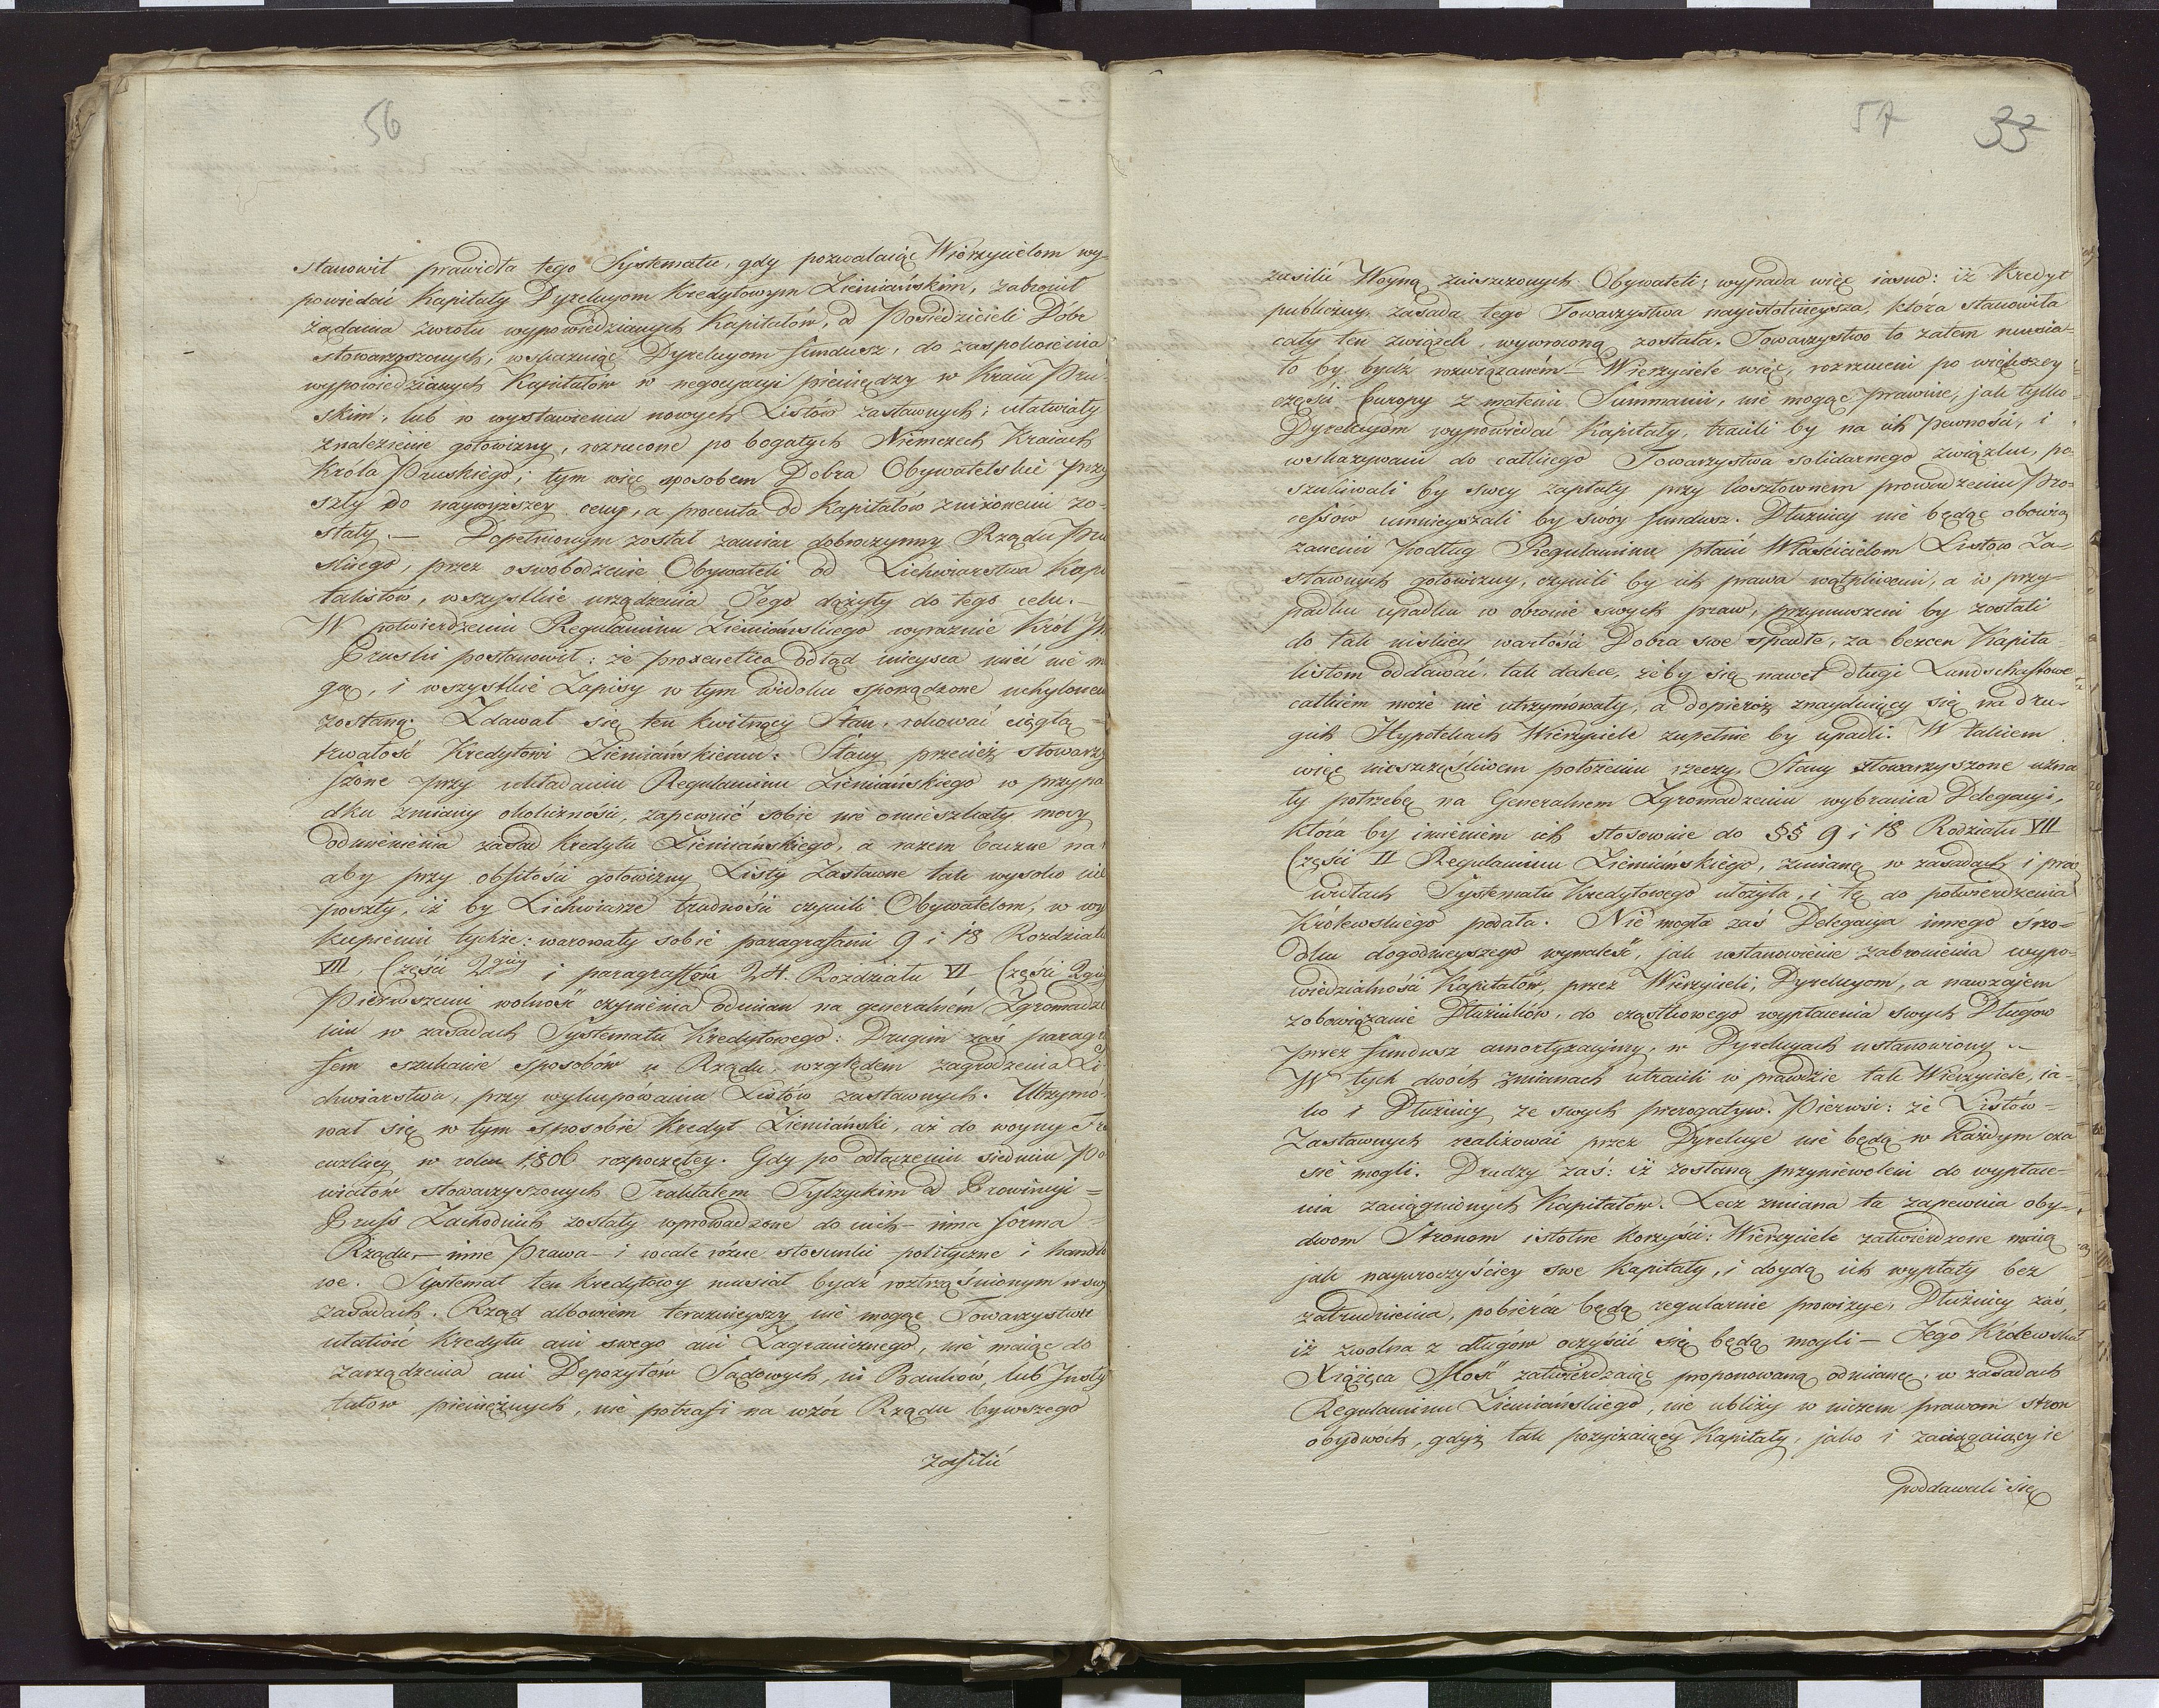 56
stanowił prawidła tego Systematu, gdy pozwalaiąc Wierzycielom wy-
powiedać Kapitały Dyrekcyom Kredytowym Ziemiańskim, zabronił
żądania zwrotu wypowiedzianych Kapitałów, od Posiedzicieli Dóbr
stowarzyszonych; wskazuiąc Dyrekcyom fundusz, do zaspokoienia
wypowiedzianych Kapitałów w negocyacyi pieniędzy w Kraiu Pru-
skim, lub w wystawieniu nowych Listów zastawnych; ułatwiały
znalezienie gotowizny, rozrzucone po bogatych Niemczech Kraiach
Króla Pruskiego; tym więc sposobem Dobra Obywatelskie przy
szły do naywyższey ceny, a procenta od Kapitałów zniżonemi zo-
stały. — Dopełnionym został zamiar dobroczynny Rządu Pru
skiego, przez oswobodzenie Obywateli od Lichwiarstwa Kapi
talistów, wszystkie urządzenia Jego dążyły do tego celu. —
W potwierdzeniu Regulaminu Ziemiańskiego wyraźnie Król
Pruski postanowił: że proxenetica odtąd mieysca mieć nie m
gą, i wszystkie Zapisy w tym widoku sporządzone uchylonem
zostaną. Zdawał się ten kwitnący Stan, rokować ciągłą =
trwałość Kredytowi Ziemiańskiemu: Stany przecież stowarzy
szone przy układaniu Regulaminu Ziemiańskiego w przypa
dku zmiany okoliczności, zapewnić sobie nie omieszkały mocy
odmienienia zasad Kredytu Ziemiańskiego, a razem baczne na
aby przy obfitości gotowizny Listy Zastawne tak wysoko nie
poszły, iż by Lichwiarze trudności czynili Obywatelom, w wy
kupieniu tychże: warowały sobie paragrafami 9 i 18 Rozdziału
VII, Części 2giey i paragraffem 24. Rozdziału VI Części 2giey
Pierwszemi wolność czynienia odmian na generalném Zgromadze
niu w zasadach Systematu Kredytowego: Drugim zaś paragra
fem szukanie sposobów u Rządu, względem zagrodzenia Li
chwiarstwa, przy wykupówaniu Listów zastawnych. Utrzymó
wał się w tym sposobie Kredyt Ziemiański, aż do woyny Fra
cuzkiey w roku 1806 rozpoczętey. Gdy po odłączeniu siedmiu Po
wiatów stowarzyszonych Traktatem Tylzyckim od Prowincyi =
Pruss Zachodnich zostały wprowadzone do nich — inna forma =
Rządu — inne Prawa — i wcale różne stosunki polityczne i handlo
we. Systemat ten kredytowy musiał bydź roztrząśnionym w swy
zasadach. Rząd albowiem teraźnieyszy nie mogąc Towarzystwu
ułatwić Kredytu ani swego ani Zagranicznego, nie maiąc do
zarządzenia ani Depozytów Sądowych, ni Banków, lub Insty
tutów pieniężnych, nie potrafi na wzór Rządu bywszego
zasilić
57 33
zasilić Woyną zniszczonych Obywateli; wypada więc iasno: iż Kredyt
publiczny, zasada tego Towarzystwa nayistotnieysza, która stanowiła
cały ten związek, wywroconą została. Towarzystwo to zatem musia-
ło by bydź rozwiązaném — Wierzyciele więc, rozrzuceni po większey
części Europy z małemi Summami, nie mogąc prawnie, jak tylko
Dyrekcyom wypowiedać Kapitały, tracili by na ich pewności, i
wskazywani do całkiego Towarzystwa solidarnego związku, po-
szukiwali by swey zapłaty przy kosztownem prowadzeniu Pro-
cessów umnieyszali by swóy fundusz. Dłużnicy nie będąc obowią
zanemi podług Regulaminu płacić Właścicielom Listów Za-
stawnych gotowizny, czynili by ich prawa wątpliwemi, a w przy-
padku upadku w obronie swych praw, przymuszeni by zostali
do tak niskiey wartości Dobra swe spadłe, za bezcen Kapita-
listom oddawać, tak dalece, żeby się nawet długi Landschaftowe
całkiem może nie utrzymówały, a dopieroż znayduiący się na dru-
gich Hypotekach Wierzyciele zupełnie by upadli. W takiem
więc nieszczęśliwem położeniu rzeczy, Stany stowarzyszone uzna
ły potrzebę na Generalnem Zgromadzeniu wybrania Delegacyi,
która by imieniem ich stosownie do §§ 9 i 18 Rozdziału VII
Części II Regulaminu Ziemiańskiego, zmianę w zasadach i pra
widłach Systematu Kredytowego ułożyła, i tę do potwierdzenia
Królewskiego podała. Nie mogła zaś Delegacya innego śro-
dku dogodnieyszego wynaleść, jak ustanowienie zabronienia wypo-
wiedzialności Kapitałów, przez Wierzycieli, Dyrekcyom, a nawzajem
zobowiązanie Dłużników, do cząstkowego wypłacenia swych Długów
przez fundusz amortyzacyiny, w Dyrekcyach ustanowiony —
W tych dwóch zmianach utracili w prawdzie tak Wierzyciele, ia-
ko i Dłużnicy ze swych prerogatyw. Pierwsi: że Listów =
Zastawnych realizować przez Dyrekcye nie będą w każdym cza
sie mogli. Drudzy zaś: iż zostaną przyniewoleni do wypłace-
nia zaciągnionych Kapitałów. Lecz zmiana ta zapewnia oby-
dwom Stronom istotne korzyści: Wierzyciele zatwierdzone maią
jak nayuroczyściey swe Kapitały, i doydą ich wypłaty bez
zatrudnienia, pobierać będą regularnie prowizye, Dłużnicy zaś,
iż zwolna z długów oczyścić się będą mogli — Jego Królewska
Xiążęca Mość zatwierdzaiąc proponowaną odmianę, w zasadach
Regulaminu Ziemiańskiego, nie ubliży w niczem prawom stron
obydwoch, gdyż tak pożyczaiący Kapitały, jako i zaciągaiący ie
poddawali się